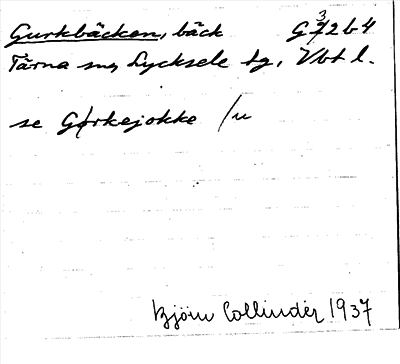 Gurkbäcken, bäck G 3 7 2 b 4
Tärna sn, Lycksele lg, Vbt l.
se Gorkejokke /u
Björn Collinder 1937